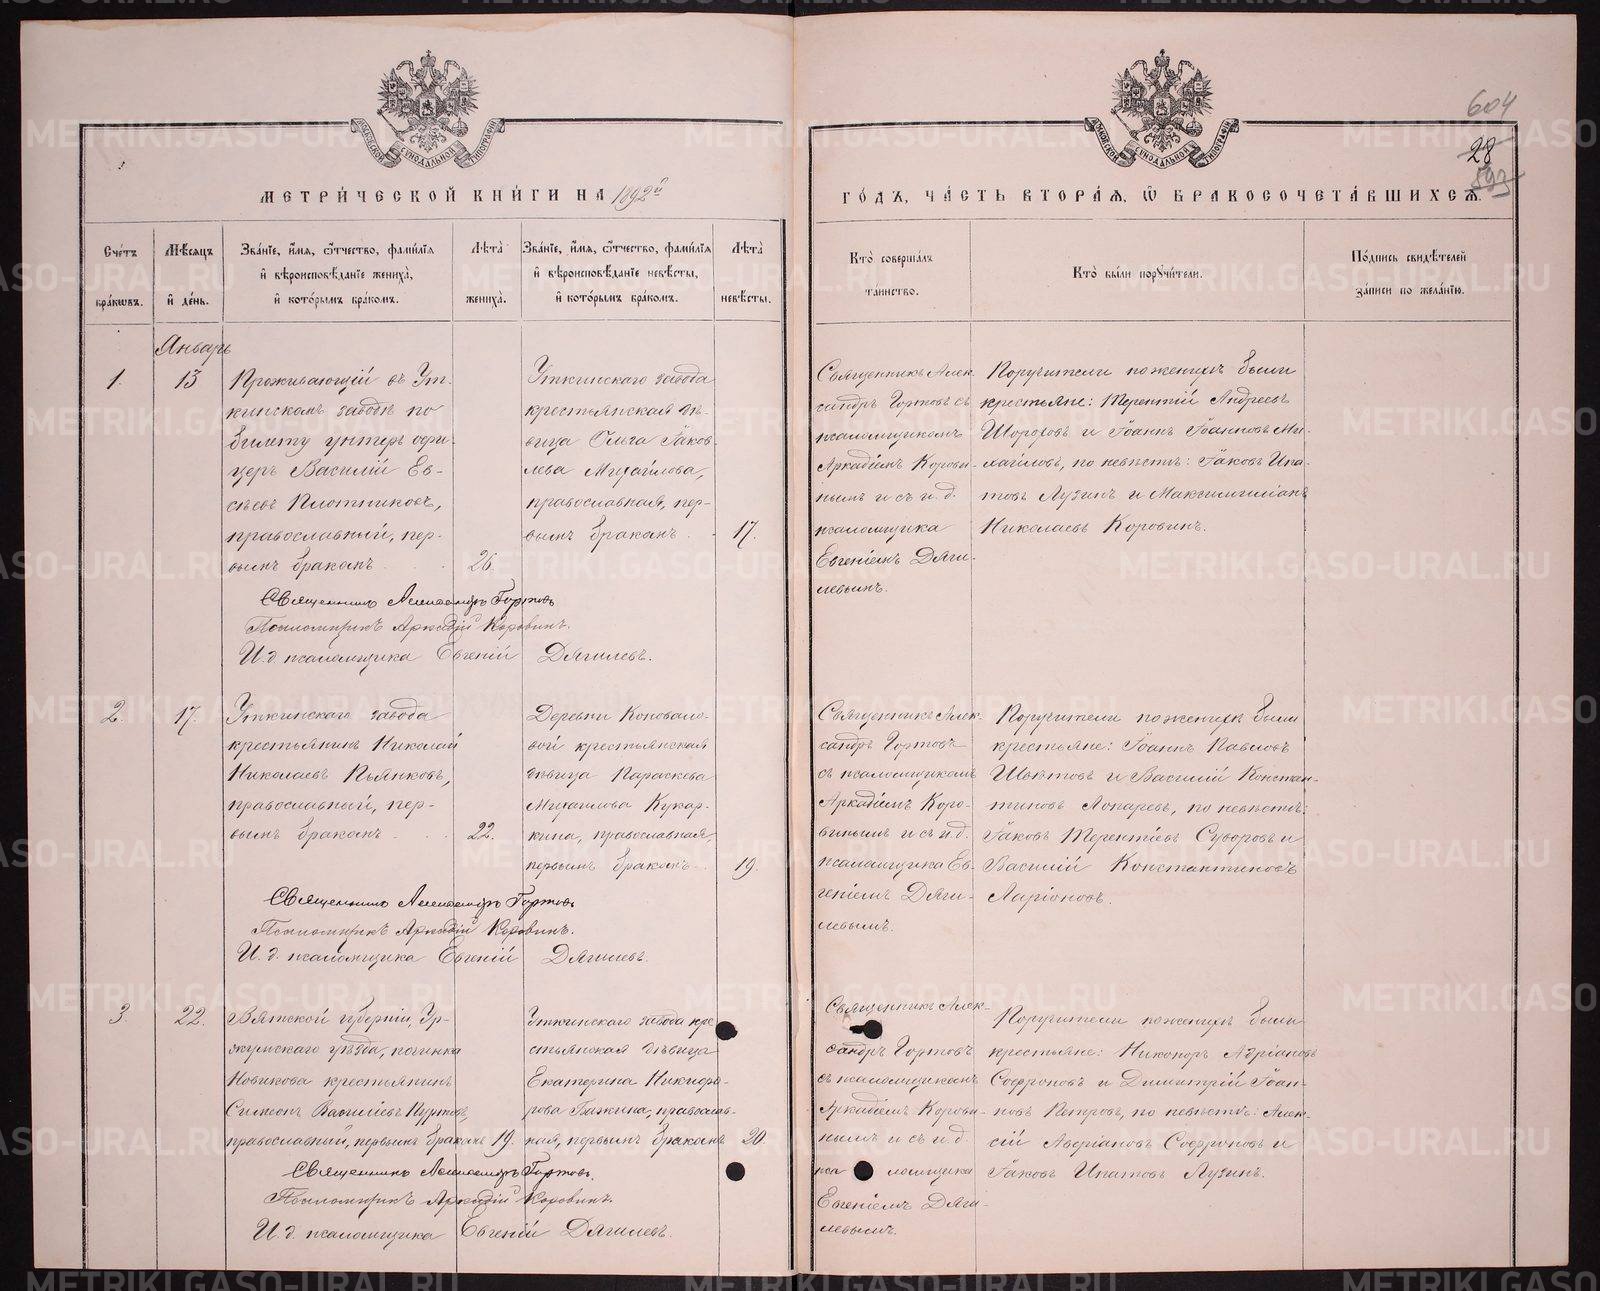 604
28
593
МЕТРИ́ЧЕСКОЙ КНИ́ГИ НА 1892й
ГО́ДЪ, ЧА́СТЬ ВТОРА́Я, Ѽ БРАКОСОЧЕТА́ВШИХСЯ.
Сче́тъ
бра́кѡвъ.
Мѣ́сяцъ
и҆ де́нь.
Зва́нїе, и҆́мя, ѻ҆́тчество, фами́лїя
и҆ вѣроисповѣ́данїе жениха̀,
и҆ кото́рымъ бра́комъ.
Лѣта̀
жениха̀.
Зва́нїе, и҆́мя, ѻ҆́тчество, фами́лїя
и҆ вѣроисповѣ́данїе невѣ́сты,
и҆ кото́рымъ бра́комъ.
Лѣта̀
невѣ́сты.
Кто̀ соверша́лъ
та́инство.
Кто̀ бы́ли порꙋчи́тели.
По́дпись свидѣ́телей
за́писи по жела́нїю.
Январь
1.
13
Проживающій въ Ут-
кинскомъ заводѣ по
билету унтеръ офи-
церъ Василій Ев-
сѣевъ Плотниковъ,
православный, пер-
вымъ бракомъ
26.
Уткинскаго завода
крестьянская дѣ-
вица Ольга Іаков-
лева Михайлова,
православная, пер-
вымъ бракомъ
17.
Священникъ Алек-
сандръ Гортовъ съ
псаломщикомъ
Аркадіемъ Корови-
нымъ и съ и. д.
псаломщика
Евгеніемъ Дяги-
левымъ.
Поручители по женихѣ были
крестьяне: Терентій Андреевъ
Шороховъ и Іоаннъ Іоанновъ Ми-
хайловъ, по невѣстѣ: Іаковъ Ипа-
товъ Лузинъ и Максимиліанъ
Николаевъ Коровинъ.
Священникъ Александръ Гортовъ
Псаломщикъ Аркадій Коровинъ.
И. д. псаломщика Евгеній Дягилевъ.
2.
17.
Уткинскаго завода
крестьянинъ Николай
Николаевъ Пьянковъ,
православный, пер-
вымъ бракомъ
22.
Деревни Коновало-
вой крестьянская
дѣвица Параскева
Михаилова Кукар-
кина, православная,
первымъ бракомъ
19.
Священникъ Алек-
сандръ Гортовъ
съ псаломщикомъ
Аркадіемъ Коро-
винымъ и съ и. д.
псаломщика Ев-
геніемъ Дяги-
левымъ.
Поручители по женихѣ были
крестьяне: Іоаннъ Павловъ
Швѣтовъ и Василій Констан-
тиновъ Лопаревъ, по невѣстѣ:
Іаковъ Терентіевъ Суворовъ и
Василій Константиновъ
Ларіоновъ.
Священникъ Александръ Гортовъ
Псаломщикъ Аркадій Коровинъ.
И. д. псаломщика Евгеній Дягилевъ.
3.
22.
Вятской губерніи, Ур-
жумскаго уѣзда, починка
Новикова крестьянинъ
Симеонъ Василіевъ Куртовъ,
православный, первымъ бракомъ
19.
Уткинскаго завода кре-
стьянская дѣвица
Екатерина Никифо-
рова Бажина, православ-
ная, первымъ бракомъ
20.
Священникъ Алек-
сандръ Гортовъ
съ псаломщикомъ
Аркадіемъ Корови-
нымъ и съ и. д.
псаломщика
Евгеніемъ Дяги-
левымъ.
Поручители по женихѣ были
крестьяне: Никаноръ Адріановъ
Софроновъ и Димитрій Іоан-
новъ Петровъ, по невѣстѣ: Алек-
сій Адріановъ Софроновъ и
Іаковъ Ипатовъ Лузинъ.
Священникъ Александръ Гортовъ.
Псаломщикъ Аркадій Коровинъ.
И. д. псаломщика Евгеній Дягилевъ.
METRIKI.GASO-URAL.RU